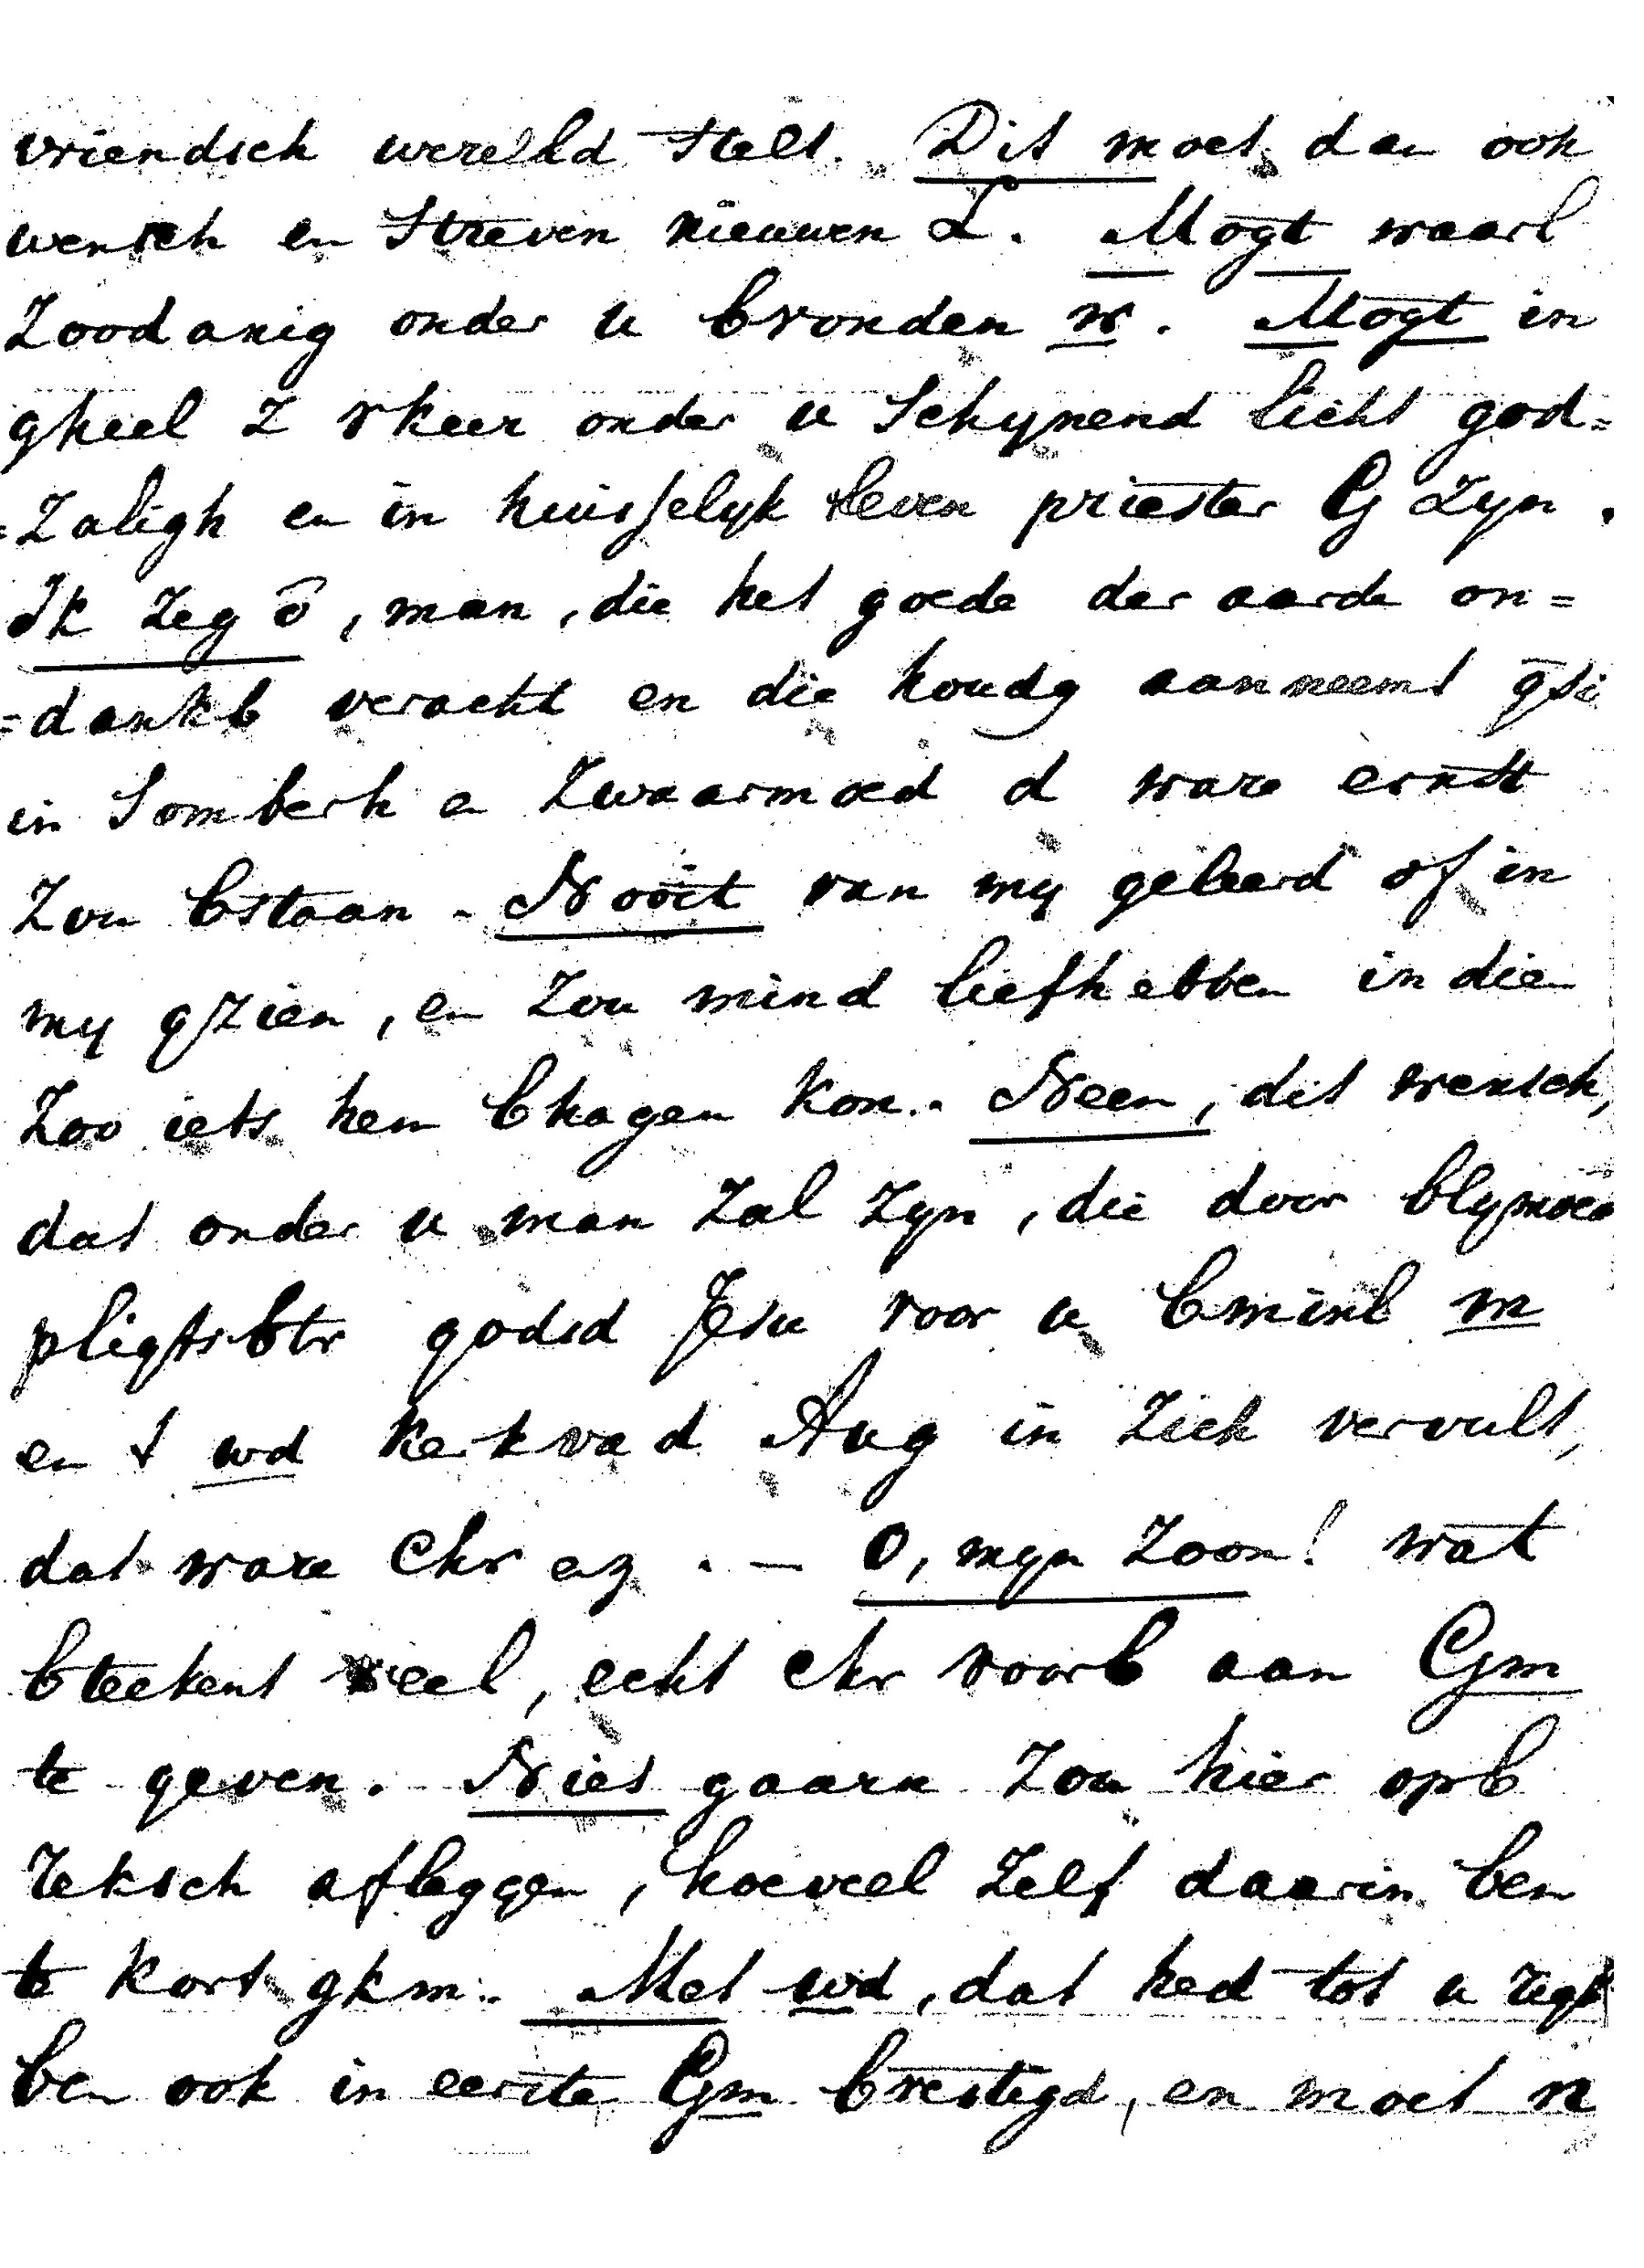 vriendsch wereld stelt. Dit moet dan ook
wensch en streven nieuwen L. Mogt waarl
Zoodanig onder u bvonden w. Mogt in
gheel z vkeer onder u schynend licht god=
=zaligh en in huisselyk leven priester G zyn.
Ik zeg ō, man, die het goede der aarde on=
=dankb veracht en die houdg aanneemt
in somberh en zwaarmoed d ware ernst
zou bstaan. Nooit van my geleerd of in
my gzien, en zou mind liefhebben indien
zoo iets hem bhagen kon. Neen, dit wensch,
dat onder u man zal zyn, die door blymoed
pligtsbtr godsd Jesu voor u bminl m
en t wd kerkvad Aug in zich vervult,
dat ware Chr enz. — O, myn zoon! wat
bteekent veel, echt chr voorb aan Gm
te geven. Niet gaarn zou hier opb
teksch afleggen, hoeveel zelf daarin ben
te kort gkm. Met wd, dat hed tot u zegt
ben ook in eerste Gm bvestigd, en moet n